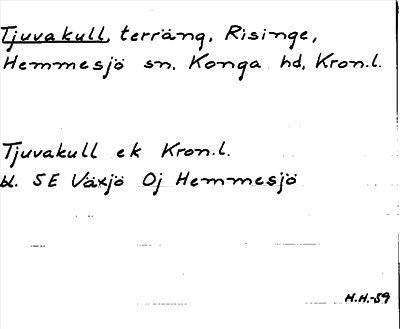 Tjuvakull, terräng, Risinge,
Hemmesjö sn, Konga hd, Kron.l.
Tjuvakull ek Kron.l.
bl. SE Växjö Oj Hemmesjö
H.H.-59